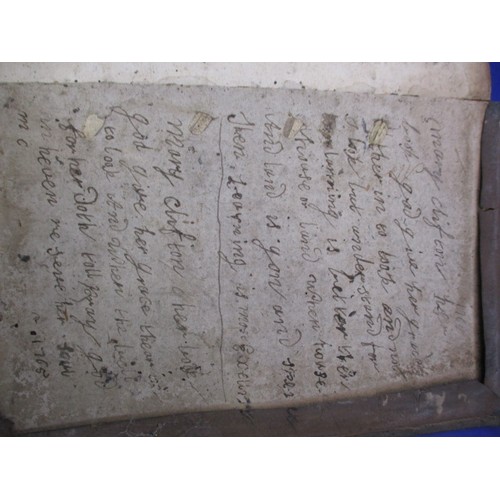 mary clifton her
book god give her grace
therin to look and not
to look but understand for
larning is better then
house or land when house
and land is gon and spent
then learning is most excelent
mary clifton her
god give her grace therin
to look and when the bell
for her doth toll pray god
in heven receive her soul
m c 175